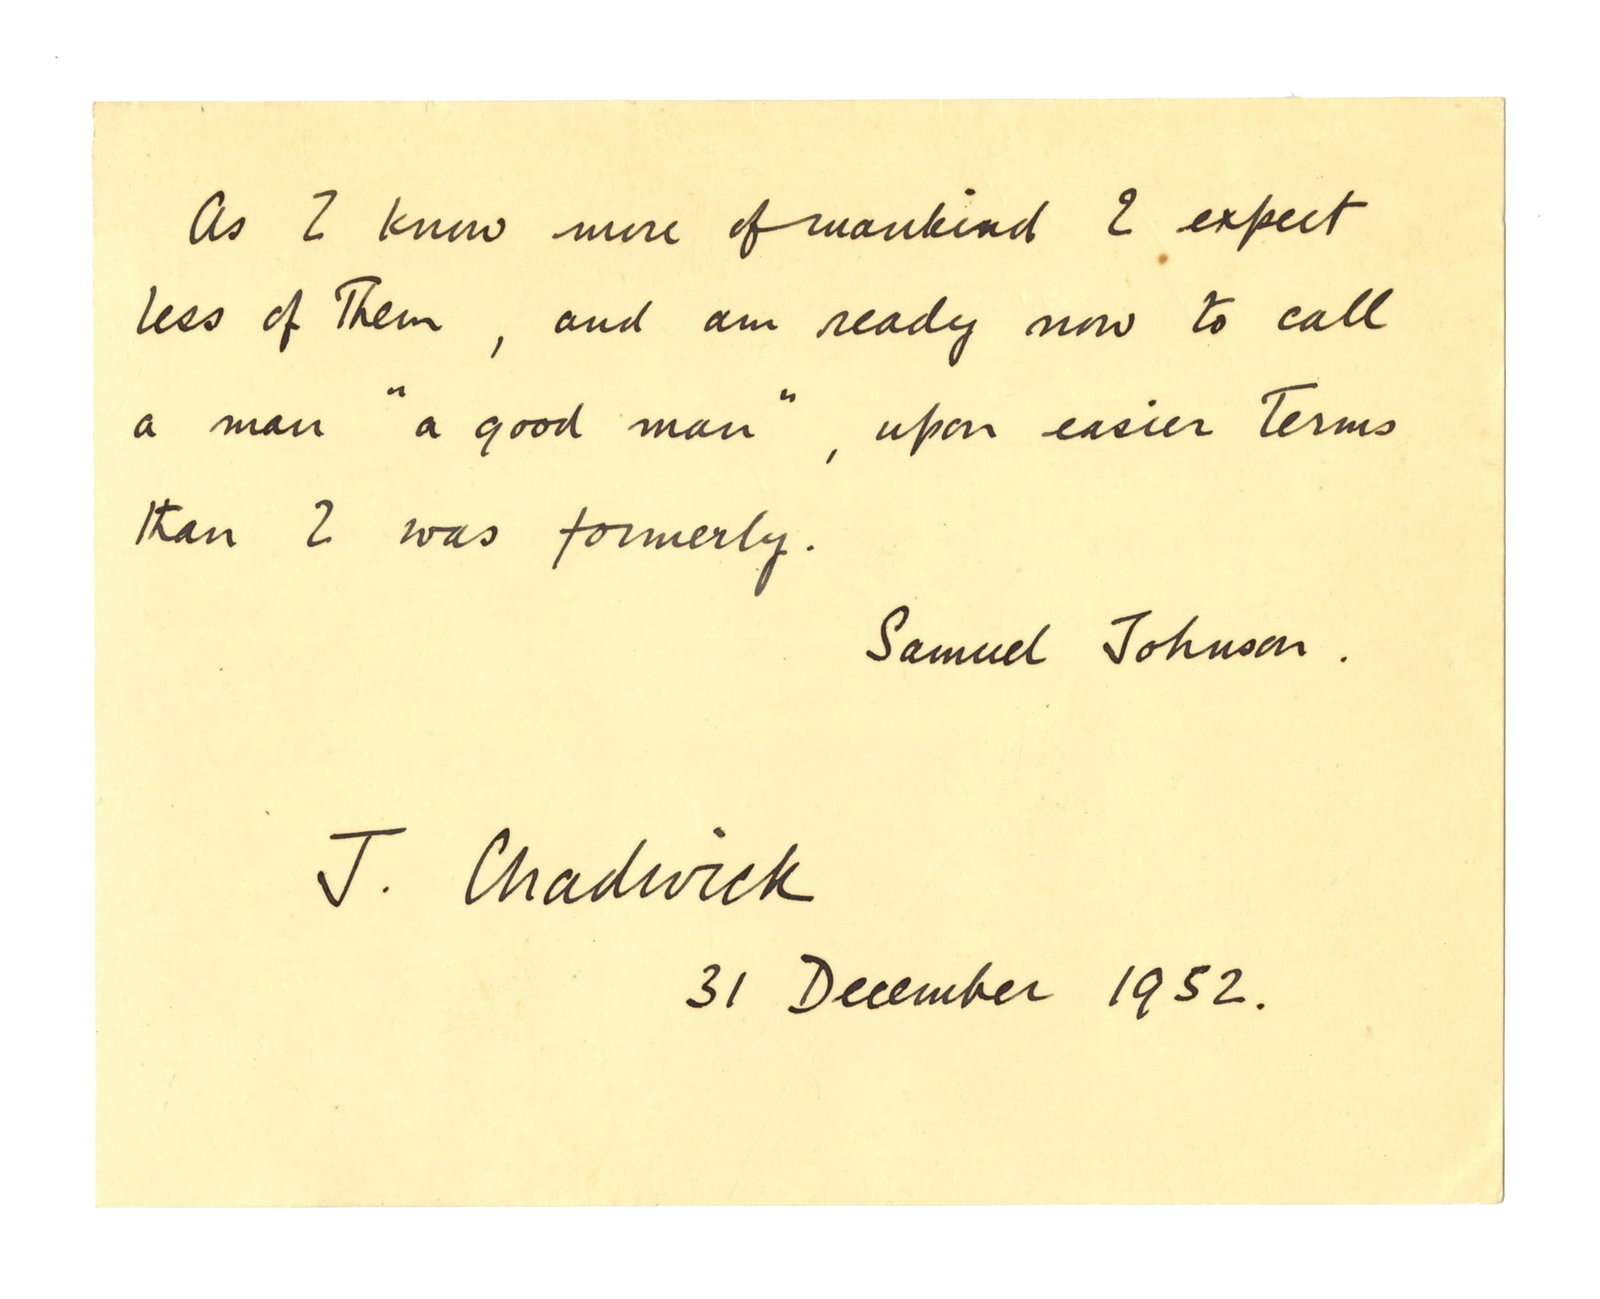 As I know more of mankind I expect
less of Them, and am ready now to call
a man "a good man", upon easier Terms
than I was formerly.
Samuel Johnson.
J. Chadwick
31 December 1952.